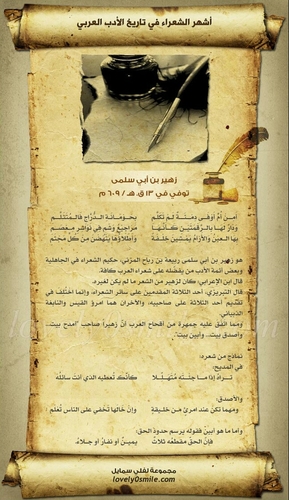 أشهر الشعراء في تاريخ الأدب العربي
زهير بن أبي سلمى
توفي في ١٣ ق.هـ / ٦٠٩ م
أمـن أمّ أوفـى دمـنـة لـم تكلّم بـحـومـانـة الـدّراج فالـمـتثلّـم
ودار لـهـا بـالـرقمتين كـأنـهـا مـراجـيـع وشـم في نـواشـر مـعـصـم
بـهـا الـعـيـنُ والآرام يمشين خلفـة وأطلاؤهـا ينهضن مـن كـل مـجثم
هو زهير بن أبي سلمى ربيعة بن رباح المزني، حكيم الشعراء في الجاهلية
وبعض أئمة الأدب من يفضله على شعراء العرب كافة.
قال ابن الإعرابي: كان لزهير من الشعر ما لم يكن لغيره.
قال التبريزي، أحد الثلاثة المقدمين على سائر الشعراء، وإنما اختلف في
تقديم أحد الثلاثة على صاحبيه، والآخران هما امرؤ القيس والنابغة
الذبياني.
ومما اتفق عليه جمهرة من أقحاح العرب أنّ زهيراً صاحب "أمدح بيت..
وأصدق بيت.. وأبين بيت".
نماذج من شعره:
في المديح:
تـراه إذا مـا جـئـتـه مـتـهـلّـلا كأنّـك تُعطيه الذي أنت سائلُه
والأصدق:
ومهما تكن عند امرئ من خليقةٍ وإن خالها تخفى على الناس تُعلمِ
وأما ما هو أبين فقوله يرسم حدود الحق:
فإنّ الحق مقطعُه ثلاثٌ يمينٌ أو نفارٌ أو جلاءُ
مجموعة لفلي سمايل
lovely0smile.com